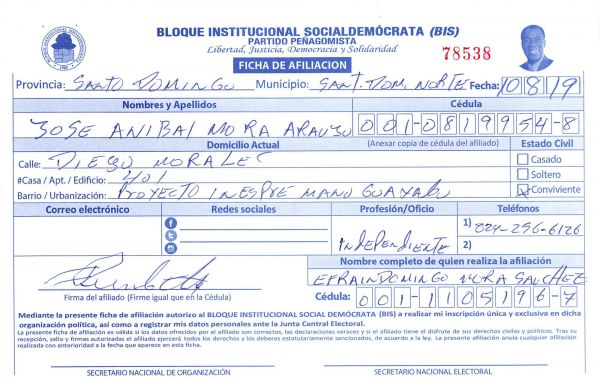 BLOQUE INSTITUCIONAL SOCIALDEMÓCRATA (BIS)
PARTIDO PEÑAGOMISTA
Libertad, Justicia, Democracia y Solidaridad
78538
FICHA DE AFILIACION
Provincia: SANTO DOMINGO Municipio: SANT. DOM. NORTE Fecha: 10 8 19
Nombres y Apellidos Cédula
JOSE ANIBAL MORA ARAUJO 001-0819954-8
Domicilio Actual (Anexar copia de cédula del afiliado) Estado Civil
Calle: DIEGO MORALES Casado
#Casa / Apt. / Edificio: 401 Soltero
Barrio / Urbanización: PROYECTO INESPRE MANOGUAYABO Conviviente
Correo electrónico Redes sociales Profesión/Oficio Teléfonos
INDEPENDIENTE 1) 829-296-6126
2)
Nombre completo de quien realiza la afiliación
EFRAIN DOMINGO MORA SANCHEZ
Firma del afiliado (Firme igual que en la Cédula) Cédula: 001-1105196-7
Mediante la presente ficha de afiliación autorizo al BLOQUE INSTITUCIONAL SOCIAL DEMÓCRATA (BIS) a realizar mi inscripción única y exclusiva en dicha
organización política, así como a registrar mis datos personales ante la Junta Central Electoral.
La presente ficha de afiliación es válida si los datos ofrecidos por el afiliado son correctos, las declaraciones veraces y si el afiliado tiene el disfrute de sus derechos civiles y políticos. Tras su
recepción, sello y firmas autorizadas el afiliado ejercerá todos los derechos y los deberes estatutariamente sancionados, de acuerdo a la ley. La presente afiliación anula cualquier afiliación
realizada con anterioridad a la fecha que aparece en esta ficha.
SECRETARIO NACIONAL DE ORGANIZACIÓN SECRETARIO NACIONAL ELECTORAL